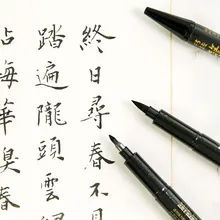 終日尋春不
踏遍隴頭雲
拈梅華臭春